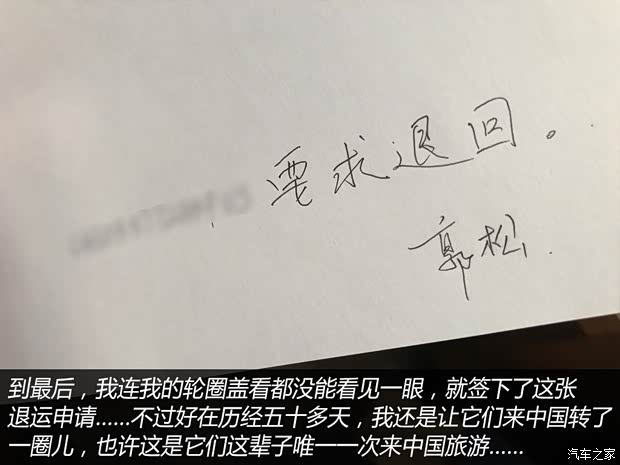 要求退回。
郭松
到最后，我连我的轮圈盖看都没能看见一眼，就签下了这张
退运申请......不过好在历经五十多天，我还是让它们来中国转了
一圈儿，也许这是它们这辈子唯一一次来中国旅游......
汽车之家